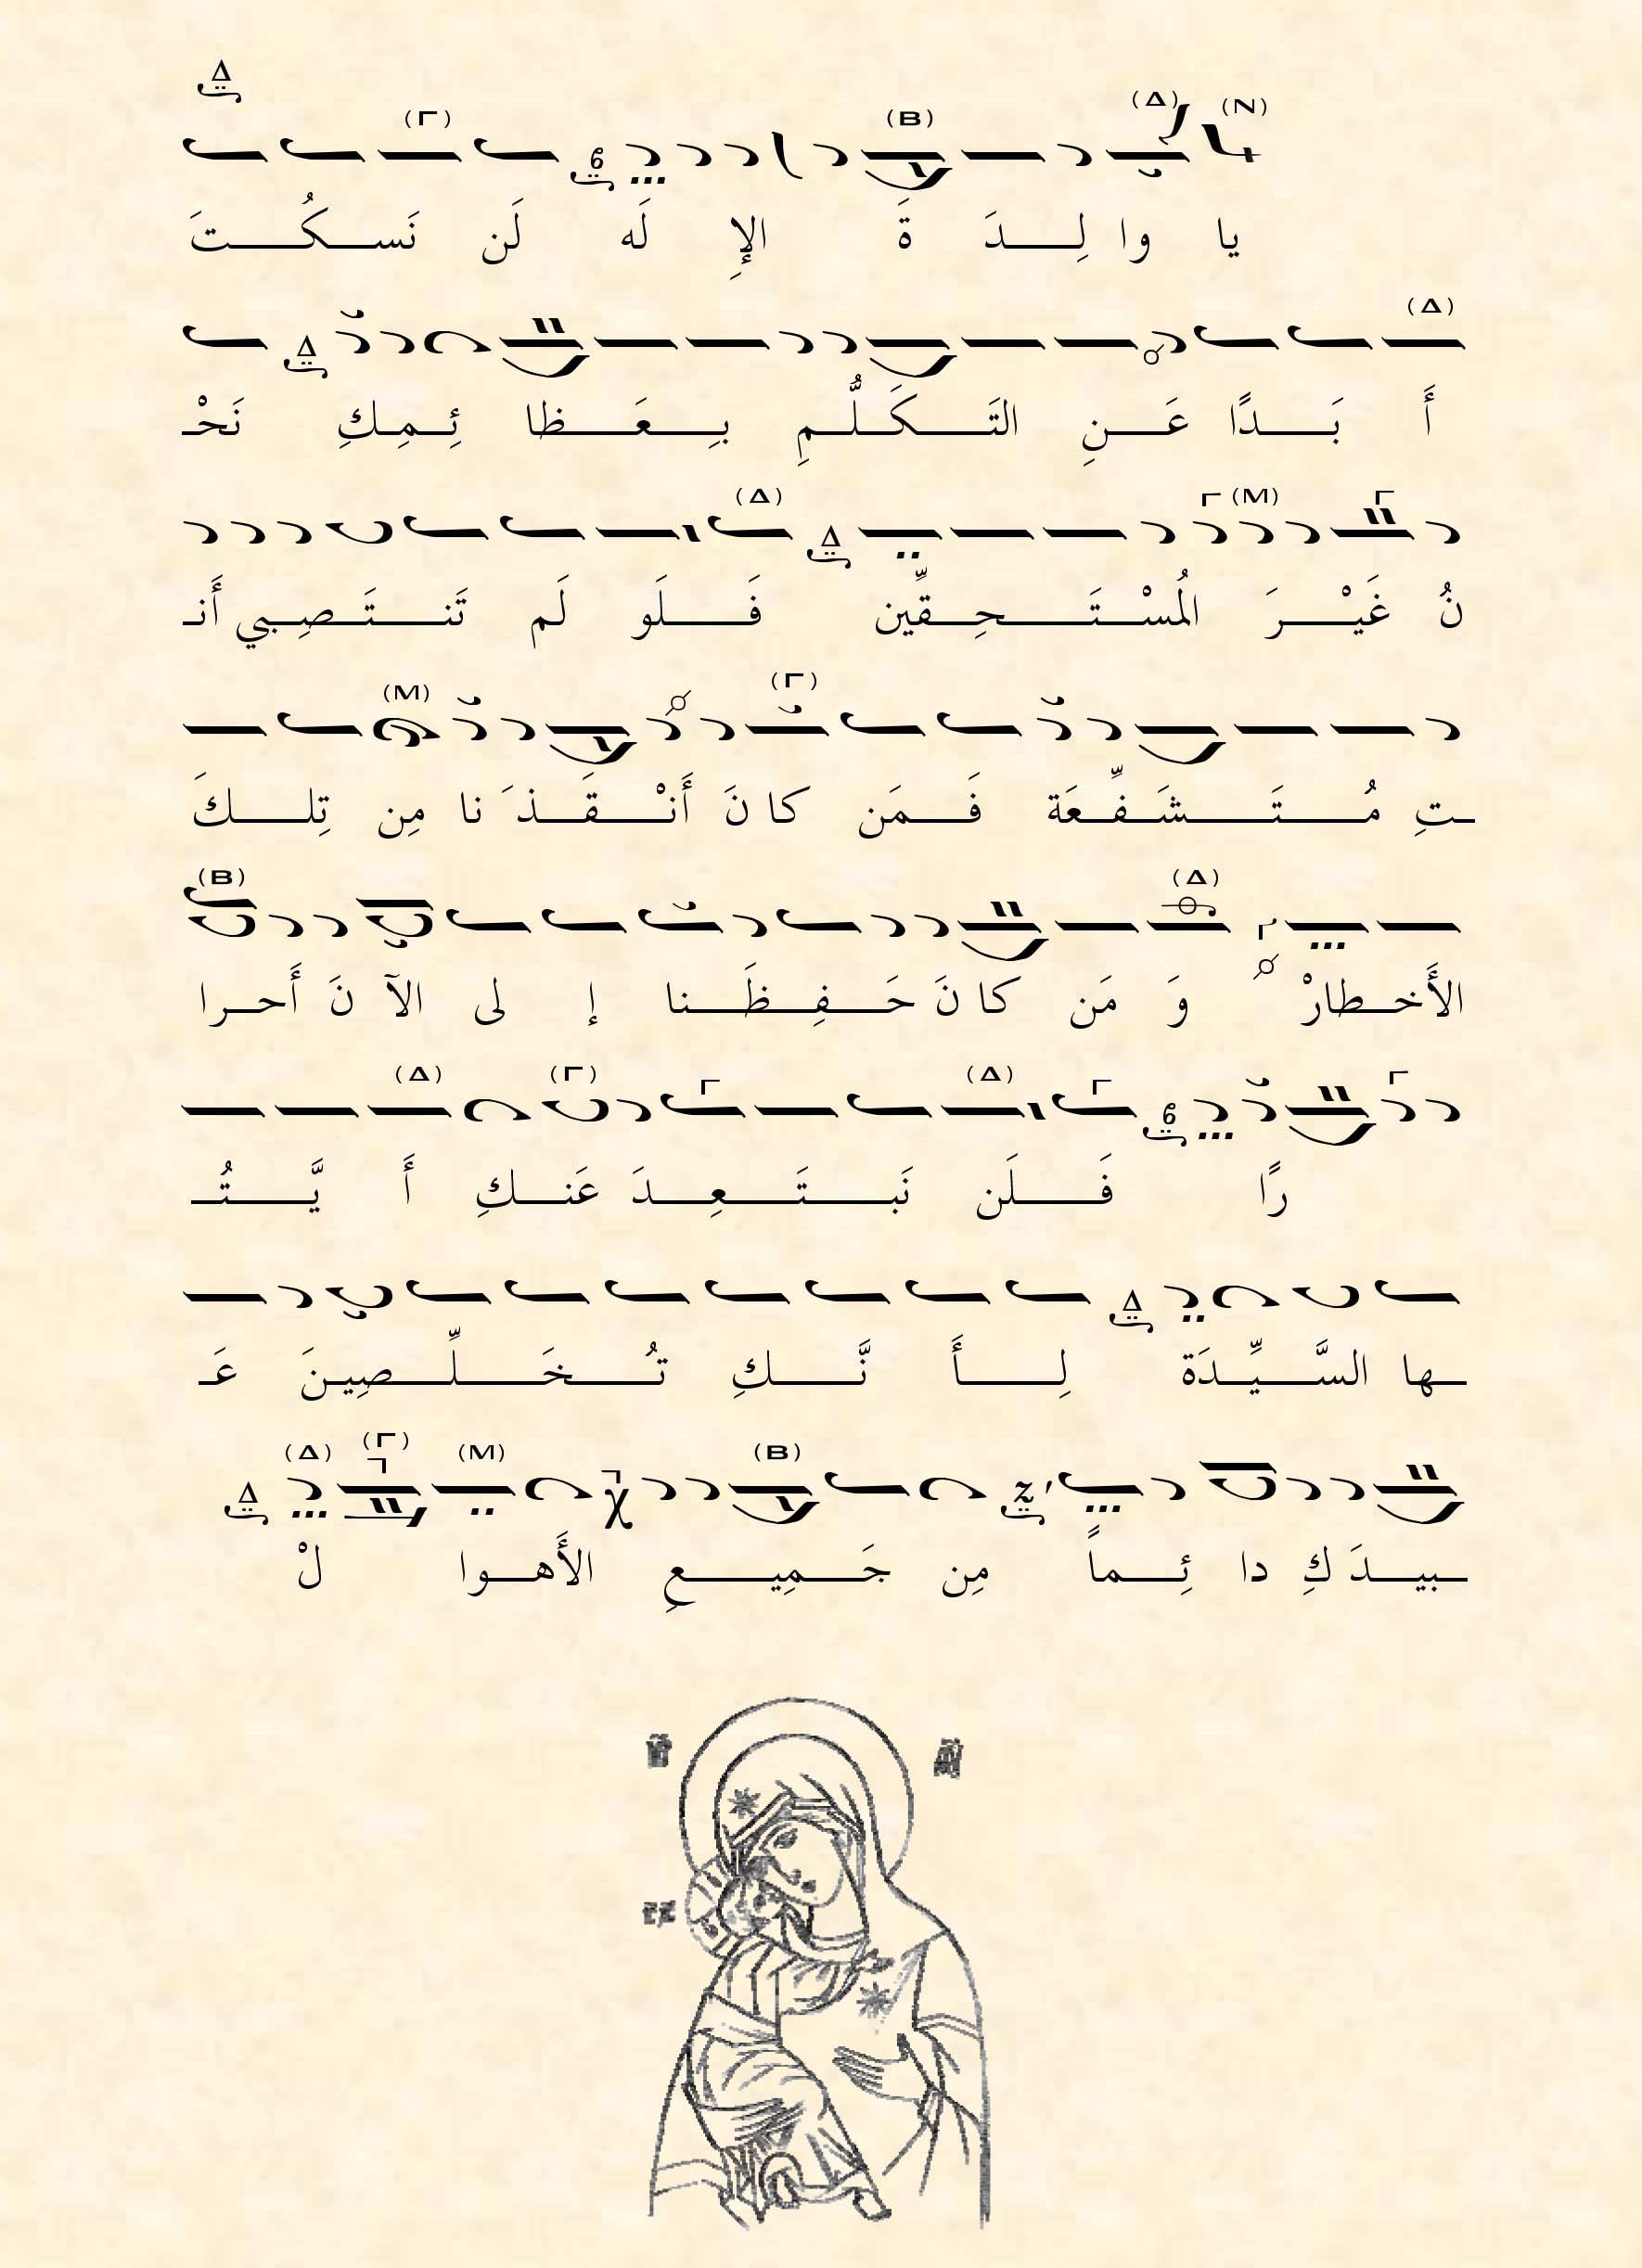 يا وا لِـــدَ ةَ الإِ لَه لَن نَســـكُـــتَ
أَ بَـــدًا عَـــنِ التَـــكَـــلُّـــمِ بِـــعَـــظا ئِـــمِـــكِ نَحْـ
نُ غَيْـــرَ المُسْـــتَـــحِـــقِّين فَـــلَو لَم تَنـــتَـــصِـــبي أَنـ
ـتِ مُـــتَـــشَـــفِّـــعَة فَـــمَن كا نَ أَنْـــقَـــذَ نا مِن تِلـــكَ
الأَخـــطارْ وَ مَن كا نَ حَـــفِـــظَـــنا إ لى الآ نَ أَحـــرا
رًا فَـــلَن نَبـــتَـــعِـــدَ عَنـــكِ أَ يَّـــتُـ
ـها السَّـــيِّـــدَة لِـــأَ نَّـــكِ تُـــخَـــلِّـــصِيـــنَ عَـ
ـبيـــدَ كِ دا ئِـــماً مِن جَـــمِيـــعِ الأَهـــوا لْ